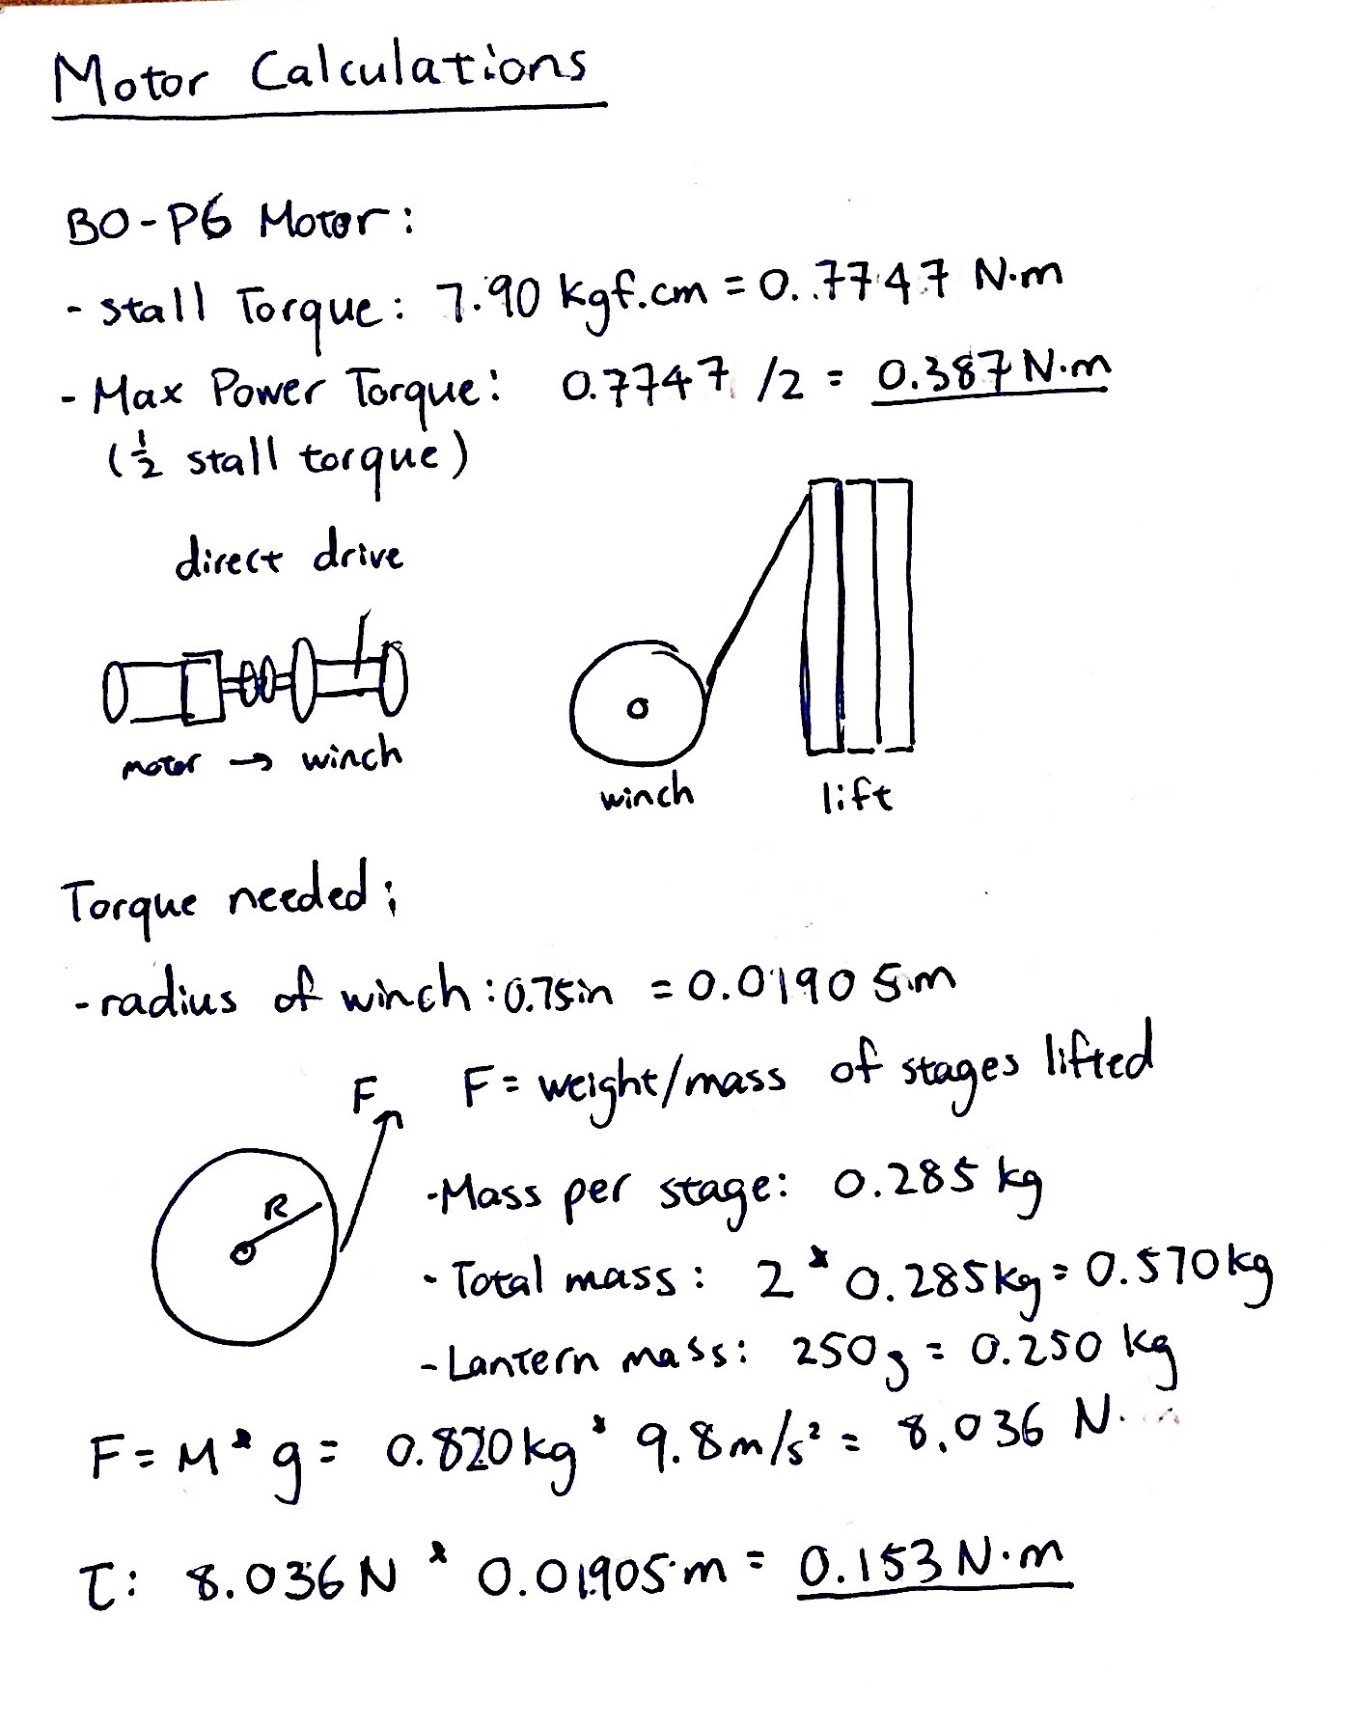 Motor Calculations
BO-P6 Motor:
- Stall Torque: 7.90 kgf.cm = 0.7747 N·m
- Max Power Torque: 0.7747 /2 = 0.387 N·m
(1/2 stall torque)
direct drive
motor → winch
winch
lift
Torque needed:
- radius of winch: 0.75in = 0.01905 m
F
F = weight/mass of stages lifted
R
- Mass per stage: 0.285 kg
- Total mass: 2 * 0.285kg = 0.570kg
- Lantern mass: 250g = 0.250 kg
F = M * g = 0.820kg * 9.8m/s² = 8.036 N
τ: 8.036 N * 0.01905 m = 0.153 N·m